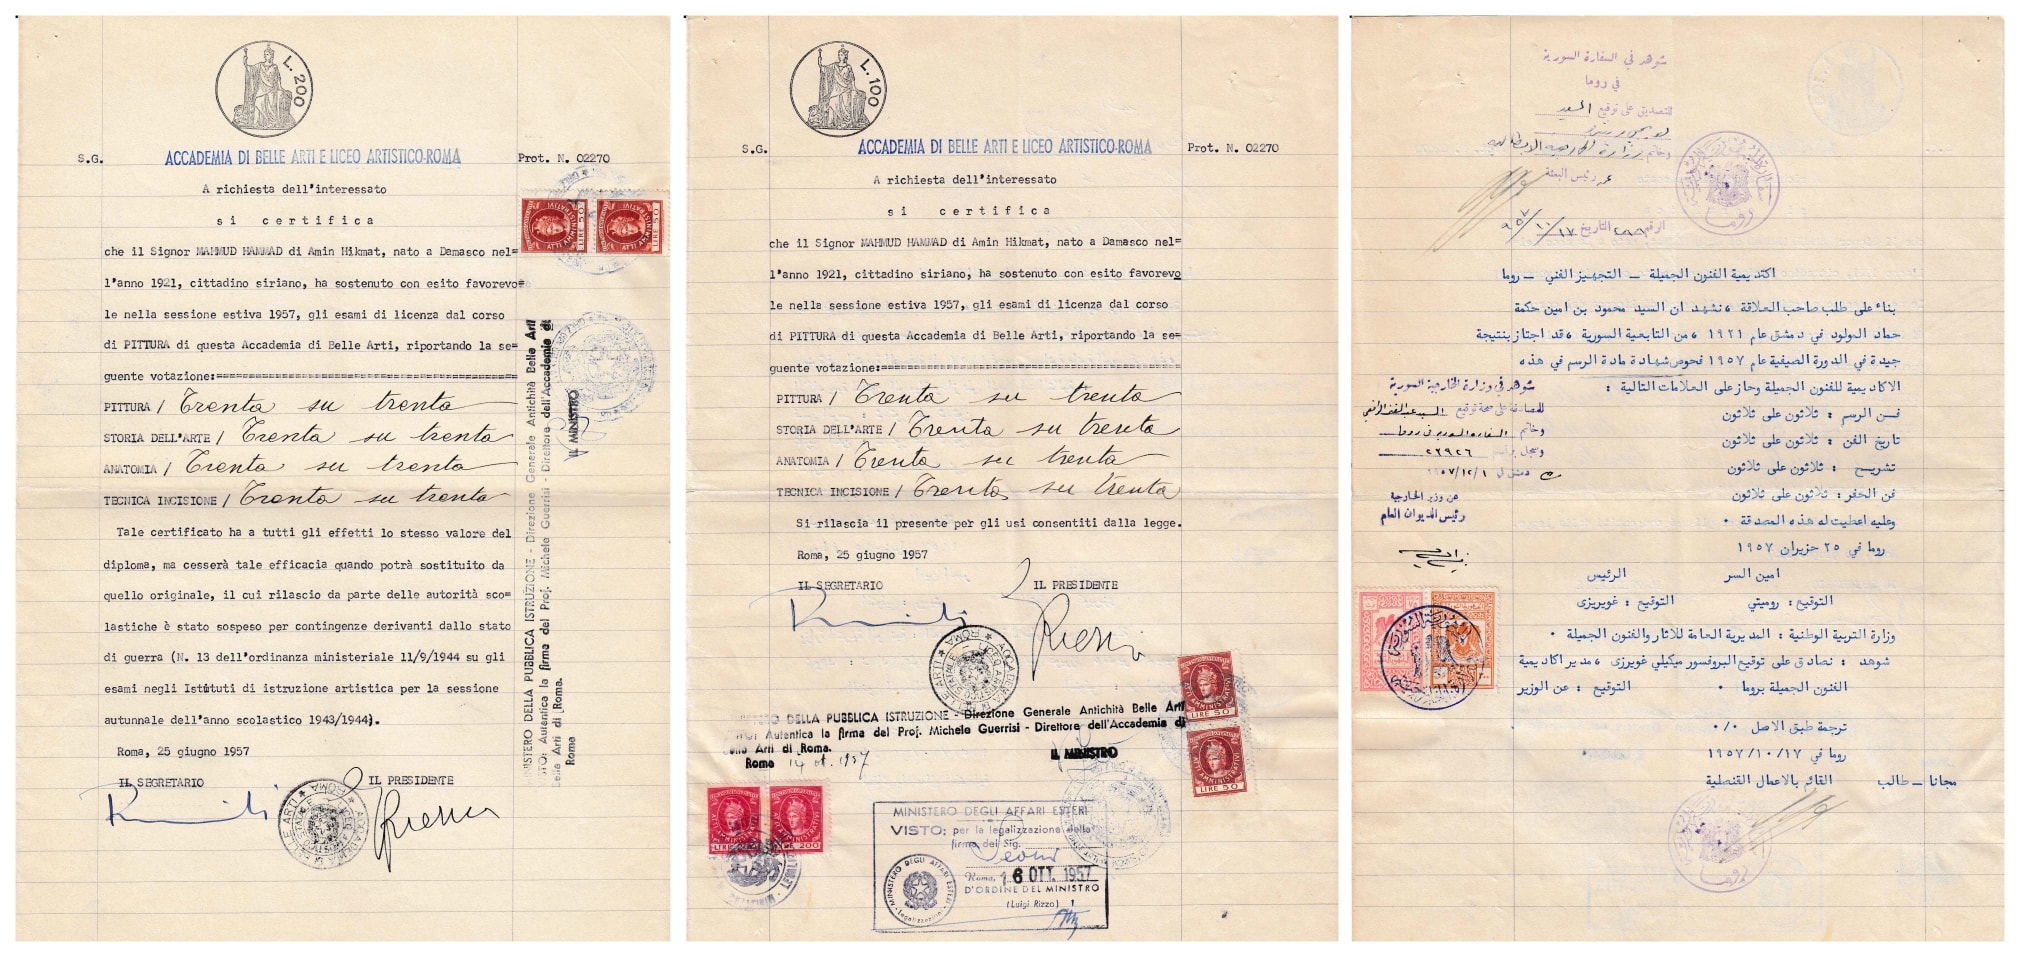 L. 200
S.G. ACCADEMIA DI BELLE ARTI E LICEO ARTISTICO-ROMA Prot. N. 02270
A richiesta dell'interessato
si certifica
che il Signor MAHMUD HAMMAD di Amin Hikmat, nato a Damasco nel=
l'anno 1921, cittadino siriano, ha sostenuto con esito favorevo=
le nella sessione estiva 1957, gli esami di licenza dal corso
di PITTURA di questa Accademia di Belle Arti, riportando la se=
guente votazione:=====================================
PITTURA / Trenta su trenta
STORIA DELL'ARTE / Trenta su trenta
ANATOMIA / Trenta su trenta
TECNICA INCISIONE / Trenta su trenta
Tale certificato ha a tutti gli effetti lo stesso valore del
diploma, ma cesserà tale efficacia quando potrà sostituito da
quello originale, il cui rilascio da parte delle autorità sco=
lastiche è stato sospeso per contingenze derivanti dallo stato
di guerra (N. 13 dell'ordinanza ministeriale 11/9/1944 su gli
esami negli Istituti di istruzione artistica per la sessione
autunnale dell'anno scolastico 1943/1944).
Roma, 25 giugno 1957
IL SEGRETARIO IL PRESIDENTE
ATTI AMMINISTRATIVI LIRE 50
ATTI AMMINISTRATIVI LIRE 50
MINISTERO DELLA PUBBLICA ISTRUZIONE - Direzione Generale Antichità Belle Arti
VISTO: Autentica la firma del Prof. Michele Guerrisi - Direttore dell'Accademia di
Belle Arti di Roma.
Roma IL MINISTRO
L. 100
S.G. ACCADEMIA DI BELLE ARTI E LICEO ARTISTICO-ROMA Prot. N. 02270
A richiesta dell'interessato
si certifica
che il Signor MAHMUD HAMMAD di Amin Hikmat, nato a Damasco nel=
l'anno 1921, cittadino siriano, ha sostenuto con esito favorevo
le nella sessione estiva 1957, gli esami di licenza dal corso
di PITTURA di questa Accademia di Belle Arti, riportando la se=
guente votazione:=====================================
PITTURA / Trenta su trenta
STORIA DELL'ARTE / Trenta su trenta
ANATOMIA / Trenta su trenta
TECNICA INCISIONE / Trenta su trenta
Si rilascia il presente per gli usi consentiti dalla legge.
Roma, 25 giugno 1957
IL SEGRETARIO IL PRESIDENTE
DELLA PUBBLICA ISTRUZIONE - Direzione Generale Antichità Belle Arti
Autentica la firma del Prof. Michele Guerrisi - Direttore dell'Accademia di
Belle Arti di Roma.
Roma 14 ot. 1957 IL MINISTRO
ATTI AMMINISTRATIVI LIRE 50
ATTI AMMINISTRATIVI LIRE 50
LIRE 200
MINISTERO DEGLI AFFARI ESTERI
VISTO: per la legalizzazione della
firma del Sig.
Roma, 16 OTT. 1957
D'ORDINE DEL MINISTRO
(Luigi Rizzo)
MINISTERO DEGLI AFFARI ESTERI
شوهد في السفارة السورية
في روما
للتصديق على توقيع السيد
وخاتم وزارة الخارجية الايطالية
عن رئيس البعثة
الرقم ٢٨٨ التاريخ ١٧/١٠/٩٥٧
اكاديمية الفنون الجميلة – التجهيز الفني – روما
بناء على طلب صاحب العلاقة ، نشهد ان السيد محمود بن امين حكمة
حماد المولود في دمشق عام ١٩٢١ ، من التابعية السورية ، قد اجتاز بنتيجة
جيدة في الدورة الصيفية عام ١٩٥٧ فحوص شهادة مادة الرسم في هذه
الاكاديمية للفنون الجميلة وحاز على العلامات التالية :
فن الرسم : ثلاثون على ثلاثون
تاريخ الفن : ثلاثون على ثلاثون
تشريح : ثلاثون على ثلاثون
فن الحفر : ثلاثون على ثلاثون
وعليه اعطيت له هذه المصدقة .
روما في ٢٥ حزيران ١٩٥٧
امين السر الرئيس
التوقيع : روميتي التوقيع : غويريزي
وزارة التربية الوطنية : المديرية العامة للاثار والفنون الجميلة .
شوهد : نصادق على توقيع البروفسور ميكيلي غويرزي ، مدير اكاديمية
الفنون الجميلة بروما . التوقيع : عن الوزير
ترجمة طبق الاصل ./.
روما في ١٩٥٧/١٠/١٧
القائم بالاعمال القنصلية مجانا – طالب
شوهد في وزارة الخارجية السورية
للمصادقة على صحة توقيع السيد
وخاتم السفارة السورية في روما
وسجل برقم ٢٣٩٢٦
دمشق في ١٩٥٧/١٢/١
عن وزير الخارجية
رئيس الديوان العام